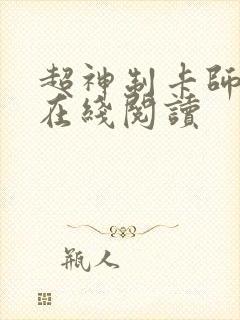 超神制卡師
在綫閱讀
瓶人